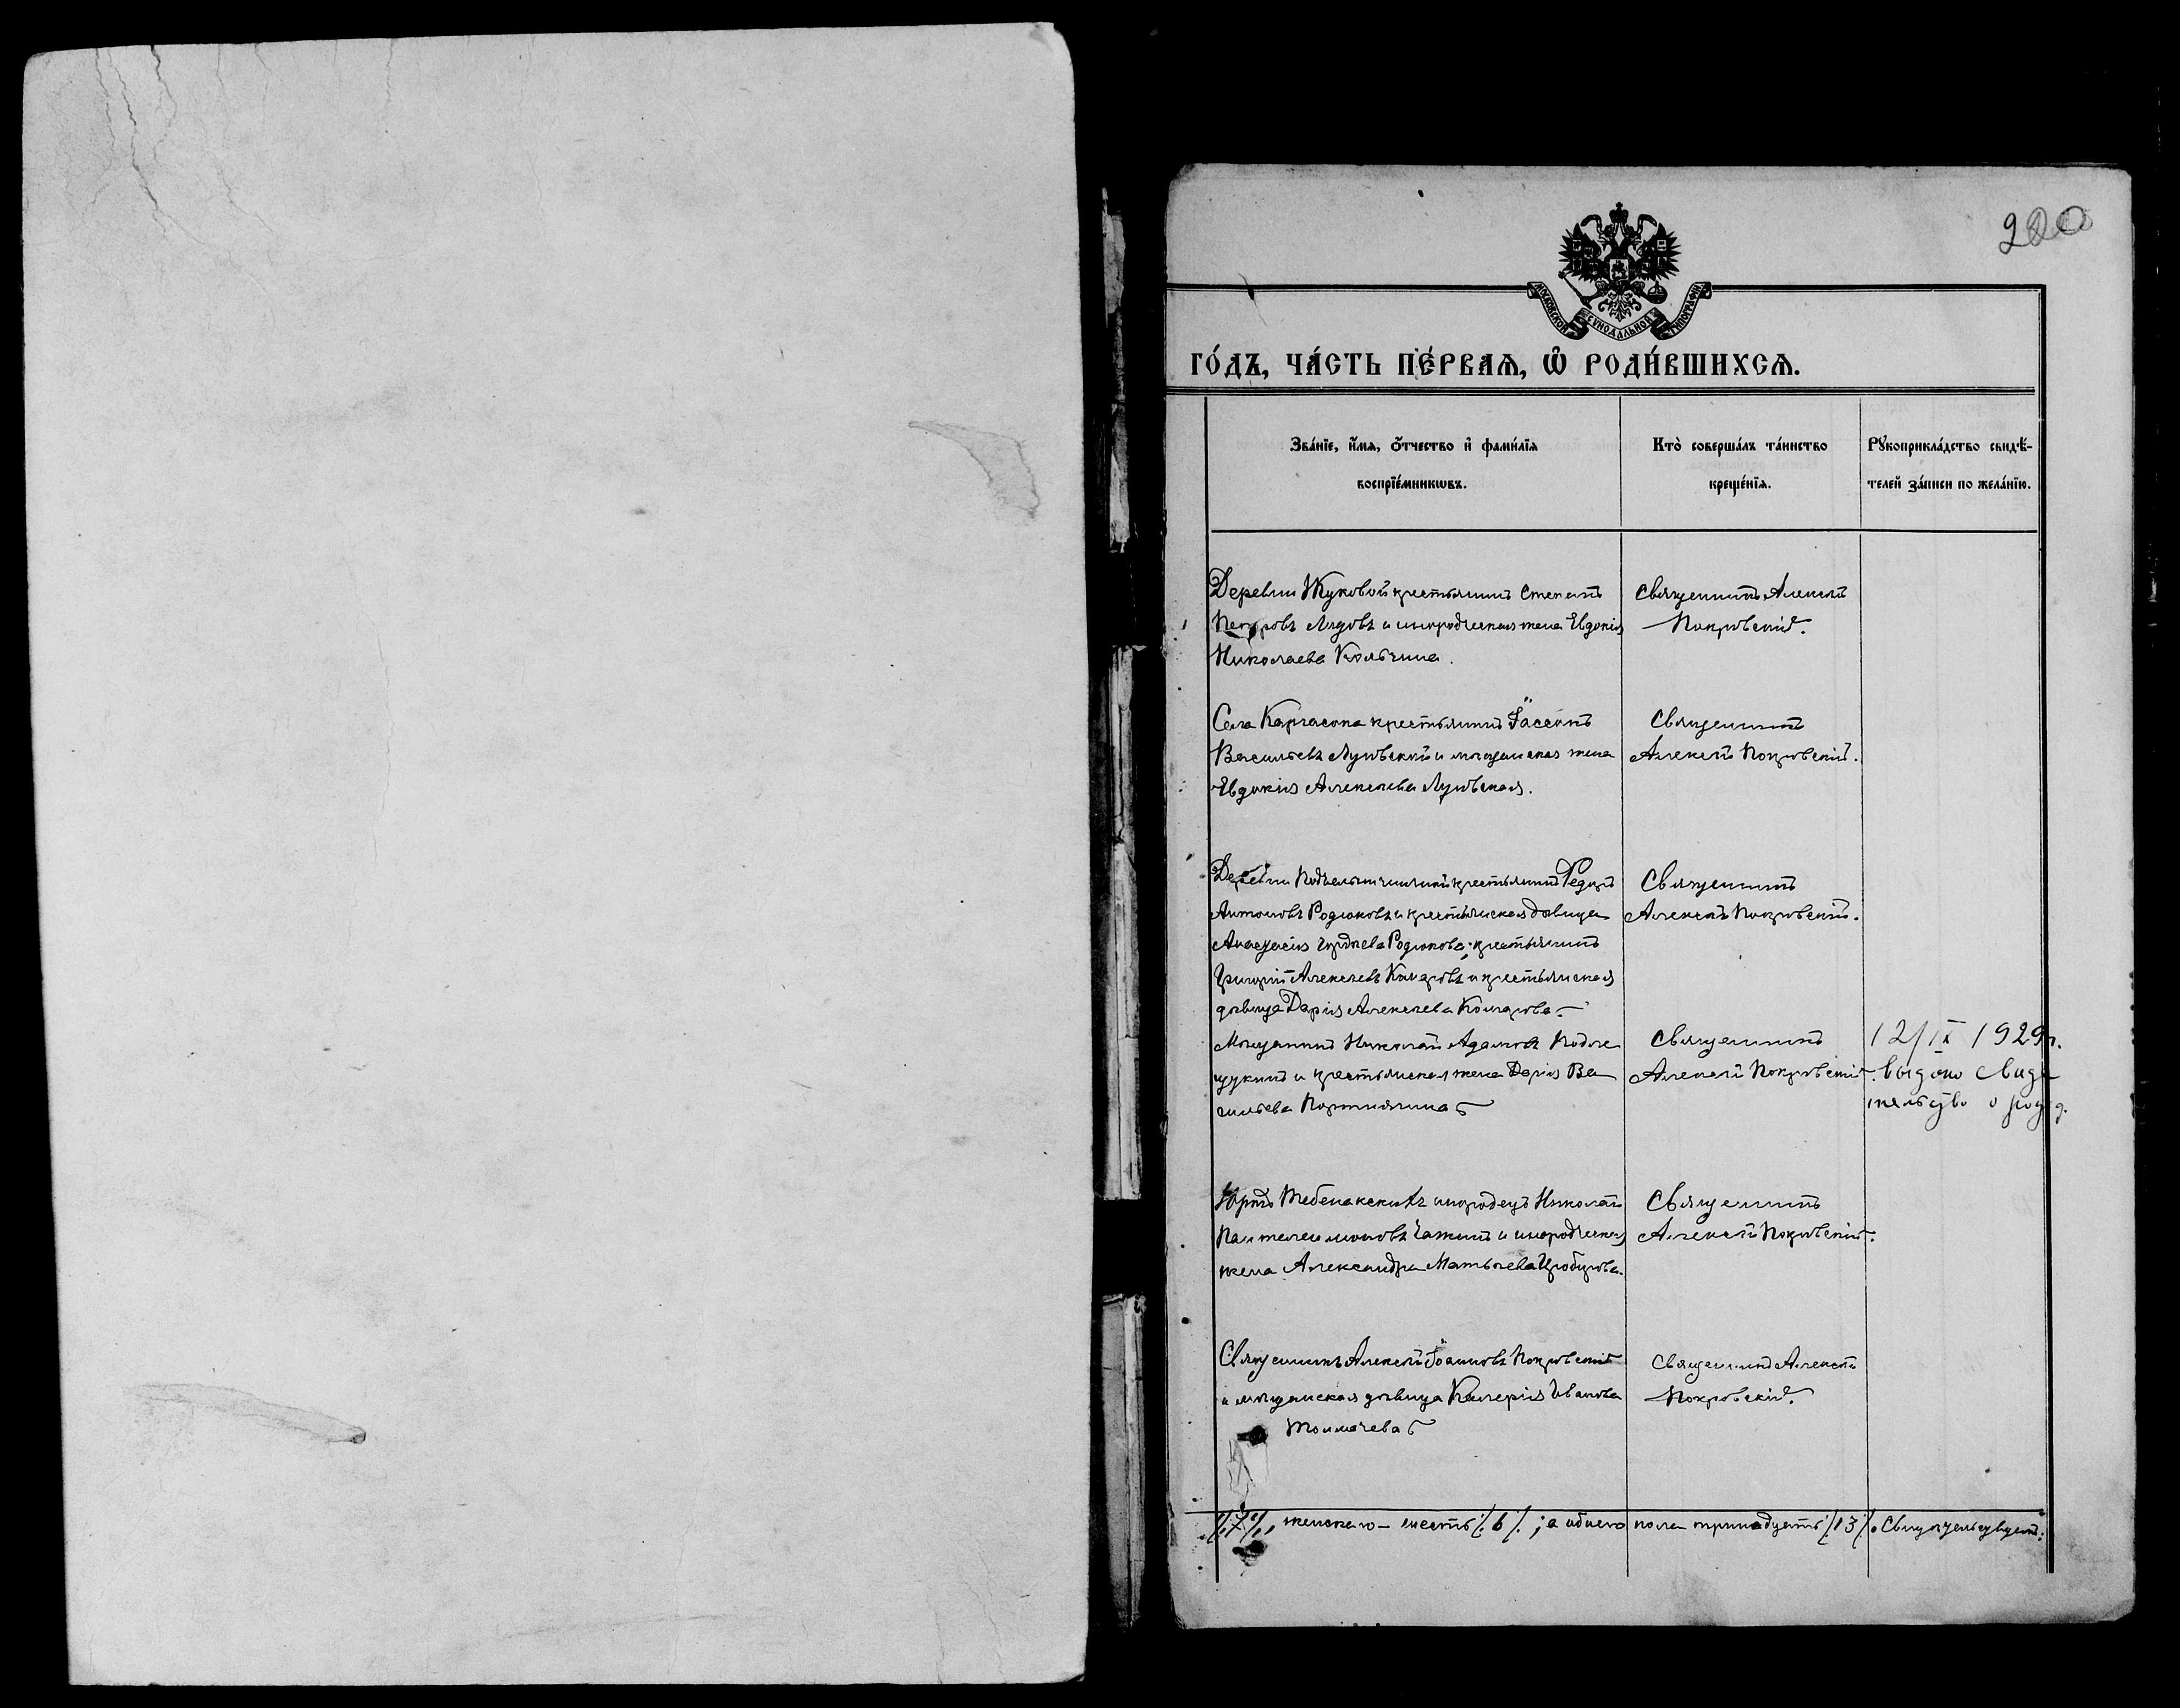 200
МОСКОВСКОЙ СѴНОДАЛЬНОЙ ТИПОГРАФІИ
ГО́ДЪ, ЧА́СТЬ ПЕ́РВАѦ, Ѡ҆ РОДИ́ВШИХСѦ.
Зва́нїе, и҆́мѧ, ѻ҆́тчество и҆ фами́лїѧ
воспрїе́мникѡвъ.
Кто̀ соверша́лъ та́инство
креще́нїѧ.
Рꙋкоприкла́дство свидѣ́-
телей за́писи по жела́нїю.
Деревни Жуковой крестьянинъ Степанъ
Петровъ Лядовъ и инородческая жена Евдокія
Николаева Кольчина.
Священникъ Алексѣй
Покровскій.
Села Каргасока крестьянинъ
Васильевъ и мѣщанская жена
Евдокія Алексѣева
Священникъ
Алексѣй Покровскій.
Деревни крестьянинъ Ѳедоръ
Антоновъ Родюковъ и крестьянская дѣвица
Анастасія Родюкова; крестьянинъ
Григорій Алексѣевъ и крестьянская
дѣвица Дарія Алексѣева
Священникъ
Алексѣй Покровскій.
Мѣщанинъ Николай Адамовъ
и крестьянская жена Дарія Ва
сильева
Священникъ
Алексѣй Покровскій.
12/IX 1929 г.
выдано свидѣ
тельство о рожд.
Юртъ Тебенакскихъ инородецъ Николай
Пантелеимоновъ Чажинъ и инородческая
жена Александра Матвѣева
Священникъ
Алексѣй Покровскій.
Священникъ Алексѣй Іоанновъ Покровскій
и мѣщанская дѣвица Валерія Иванова
Толмачева
Священникъ Алексѣй
Покровскій.
/:7:/, женскаго – шесть /:6:/; а обоего пола тринадцать /:13:/. Свидѣтельствуетъ: